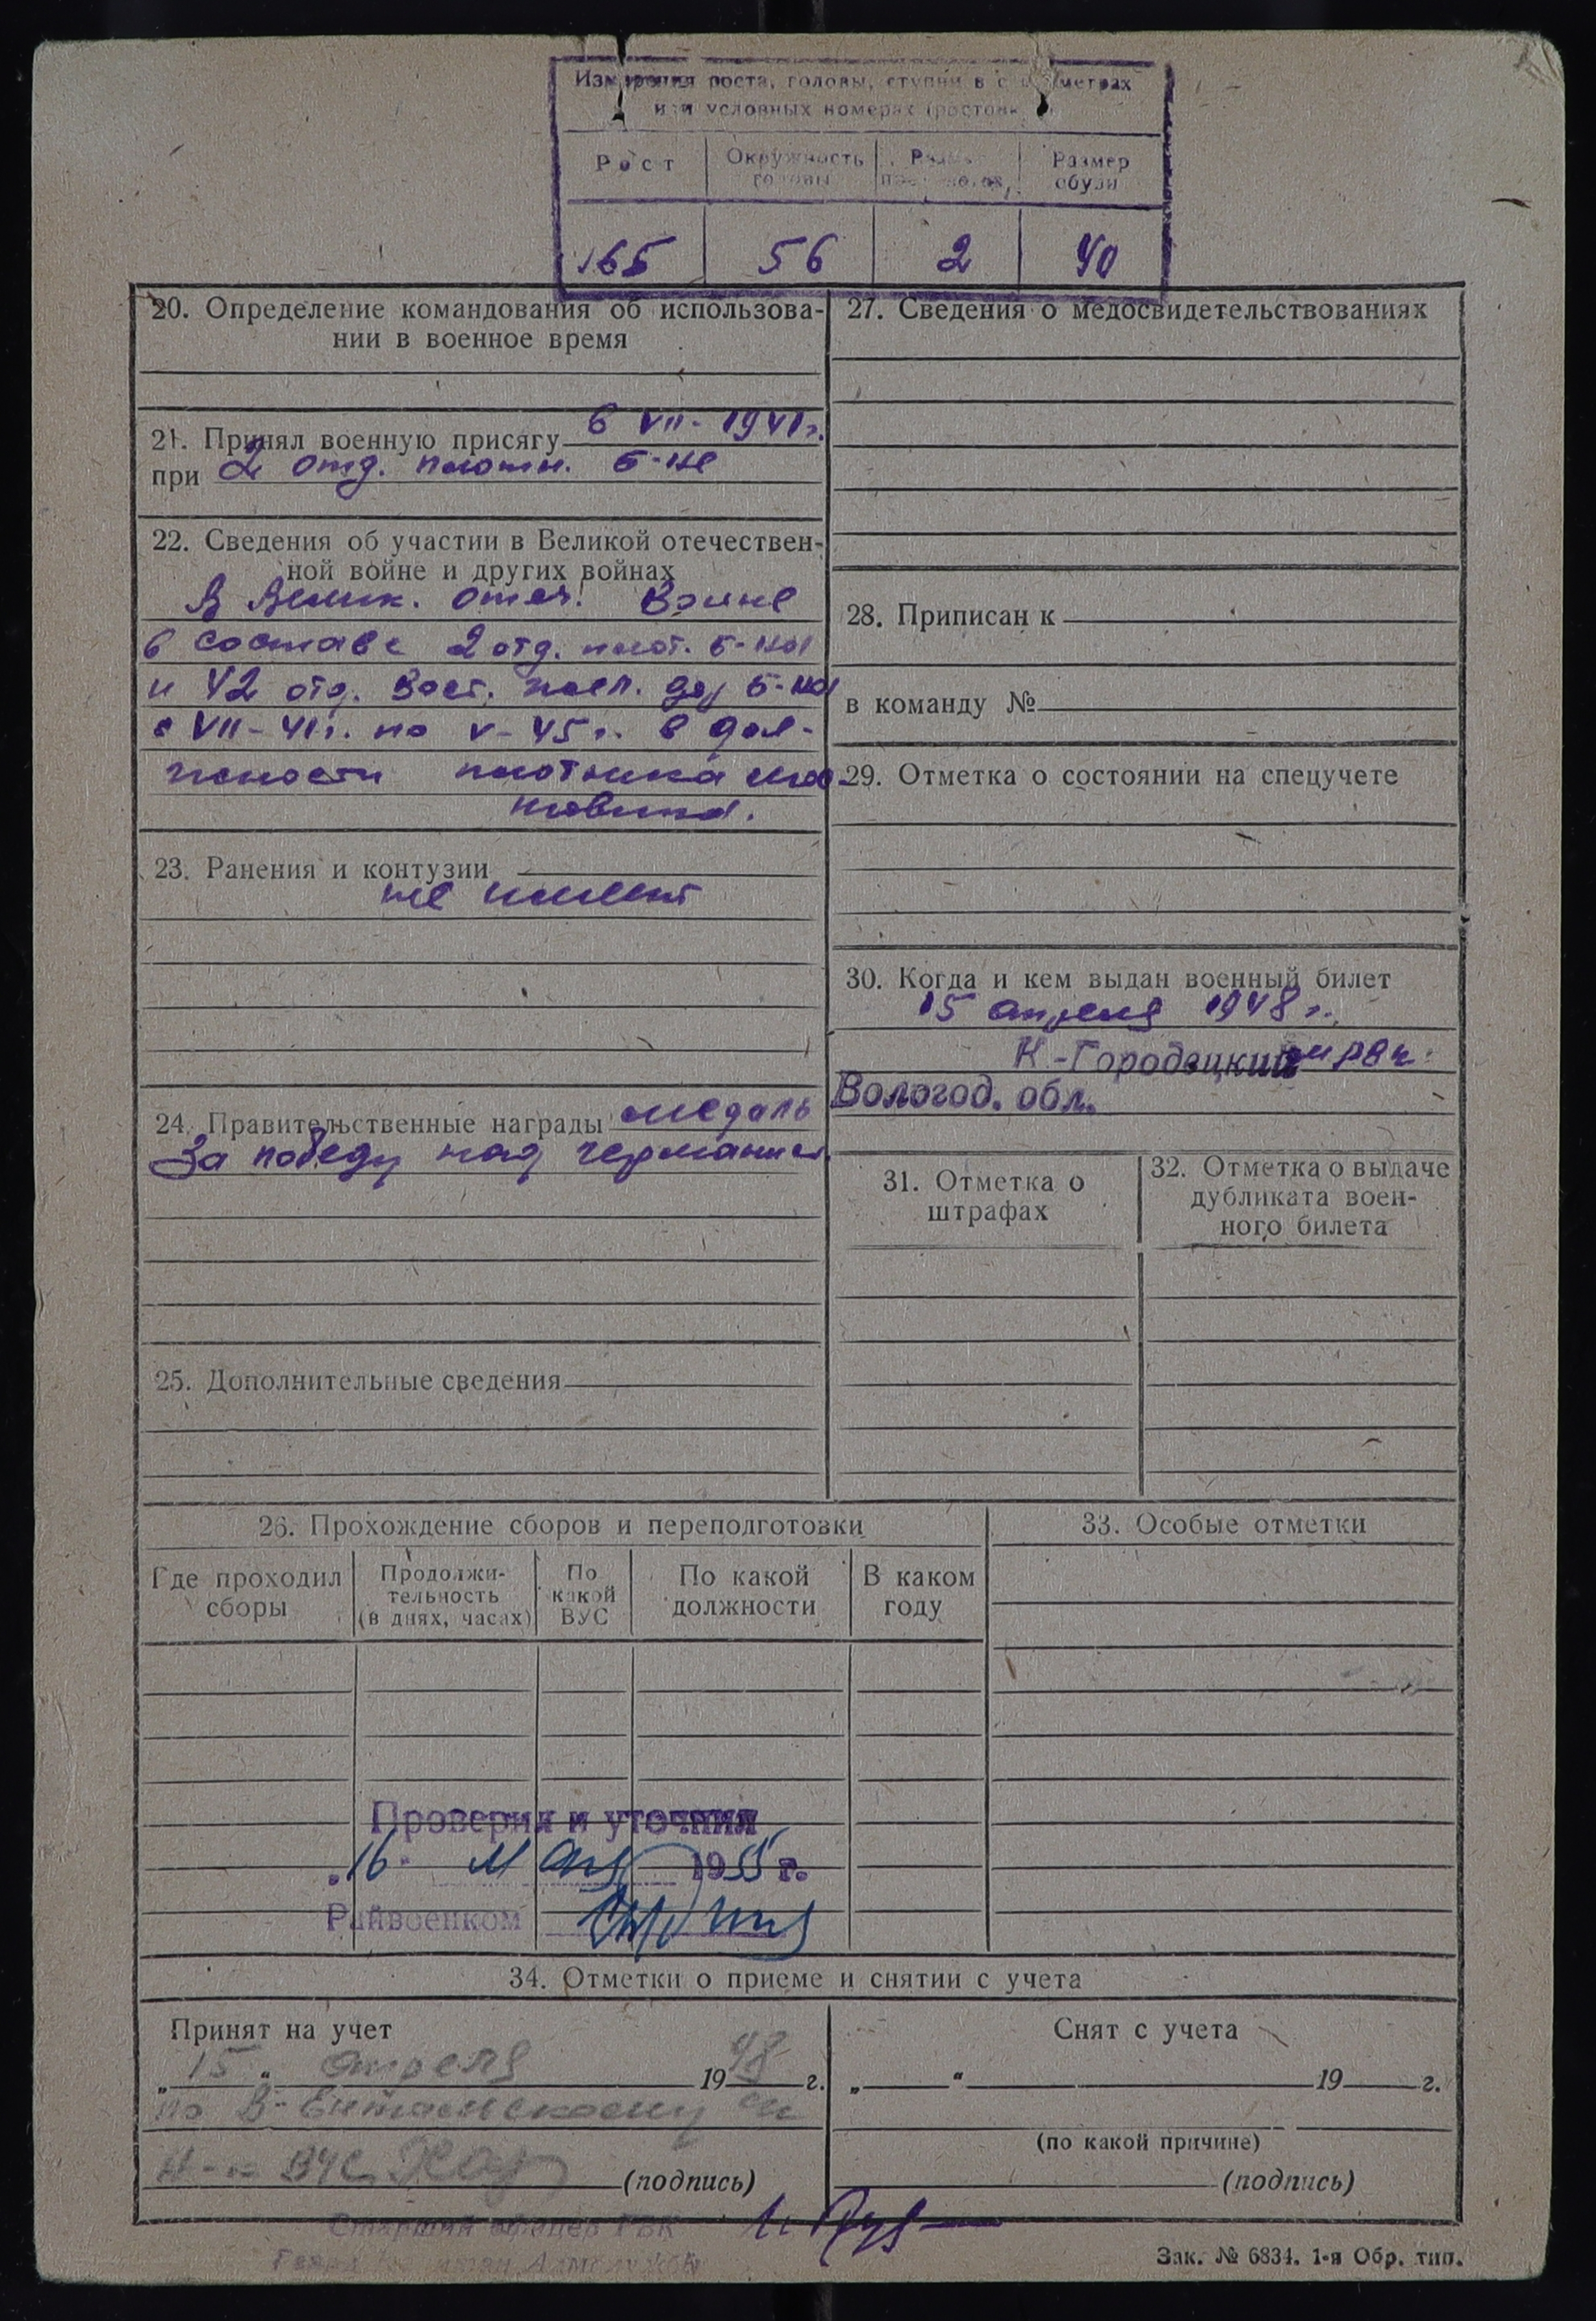 Измерения роста, головы, ступни в сантиметрах
или условных номерах (ростов
Рост
Окружность головы
Размер
Размер обуви
165
56
2
40
20. Определение командования об использова-
нии в военное время
21. Принял военную присягу 6 VII - 1941г.
при 2 отд. плотн. б-не
22. Сведения об участии в Великой отечествен-
ной войне и других войнах
В Велик. отеч. войне
в составе 2 отд. плот. б-на
и 42 отд. Вост. б-на
с VII - 41г. по V - 45г. в дол-
жности плотника мос-
товика.
23. Ранения и контузии
не имеет
24. Правительственные награды медаль
За победу над германией
25. Дополнительные сведения
27. Сведения о медосвидетельствованиях
28. Приписан к
в команду №
29. Отметка о состоянии на спецучете
30. Когда и кем выдан военный билет
15 апреля 1948 г.
К-Городецкий рвк
Вологод. обл.
31. Отметка о
штрафах
32. Отметка о выдаче
дубликата воен-
ного билета
26. Прохождение сборов и переподготовки
Где проходил
сборы
Продолжи-
тельность
(в днях, часах)
По
какой
ВУС
По какой
должности
В каком
году
33. Особые отметки
Проверил и уточнил
"16" мая 1955 г.
Райвоенком
34. Отметки о приеме и снятии с учета
Принят на учет
„15“ апреля 1948 г.
по В-Ентальскому с/с
Н-к ВУС
(подпись)
Снят с учета
„ “ 19 г.
(по какой причине)
(подпись)
Старший офицер ГВК
Зак. № 6834. 1-я Обр. тип.